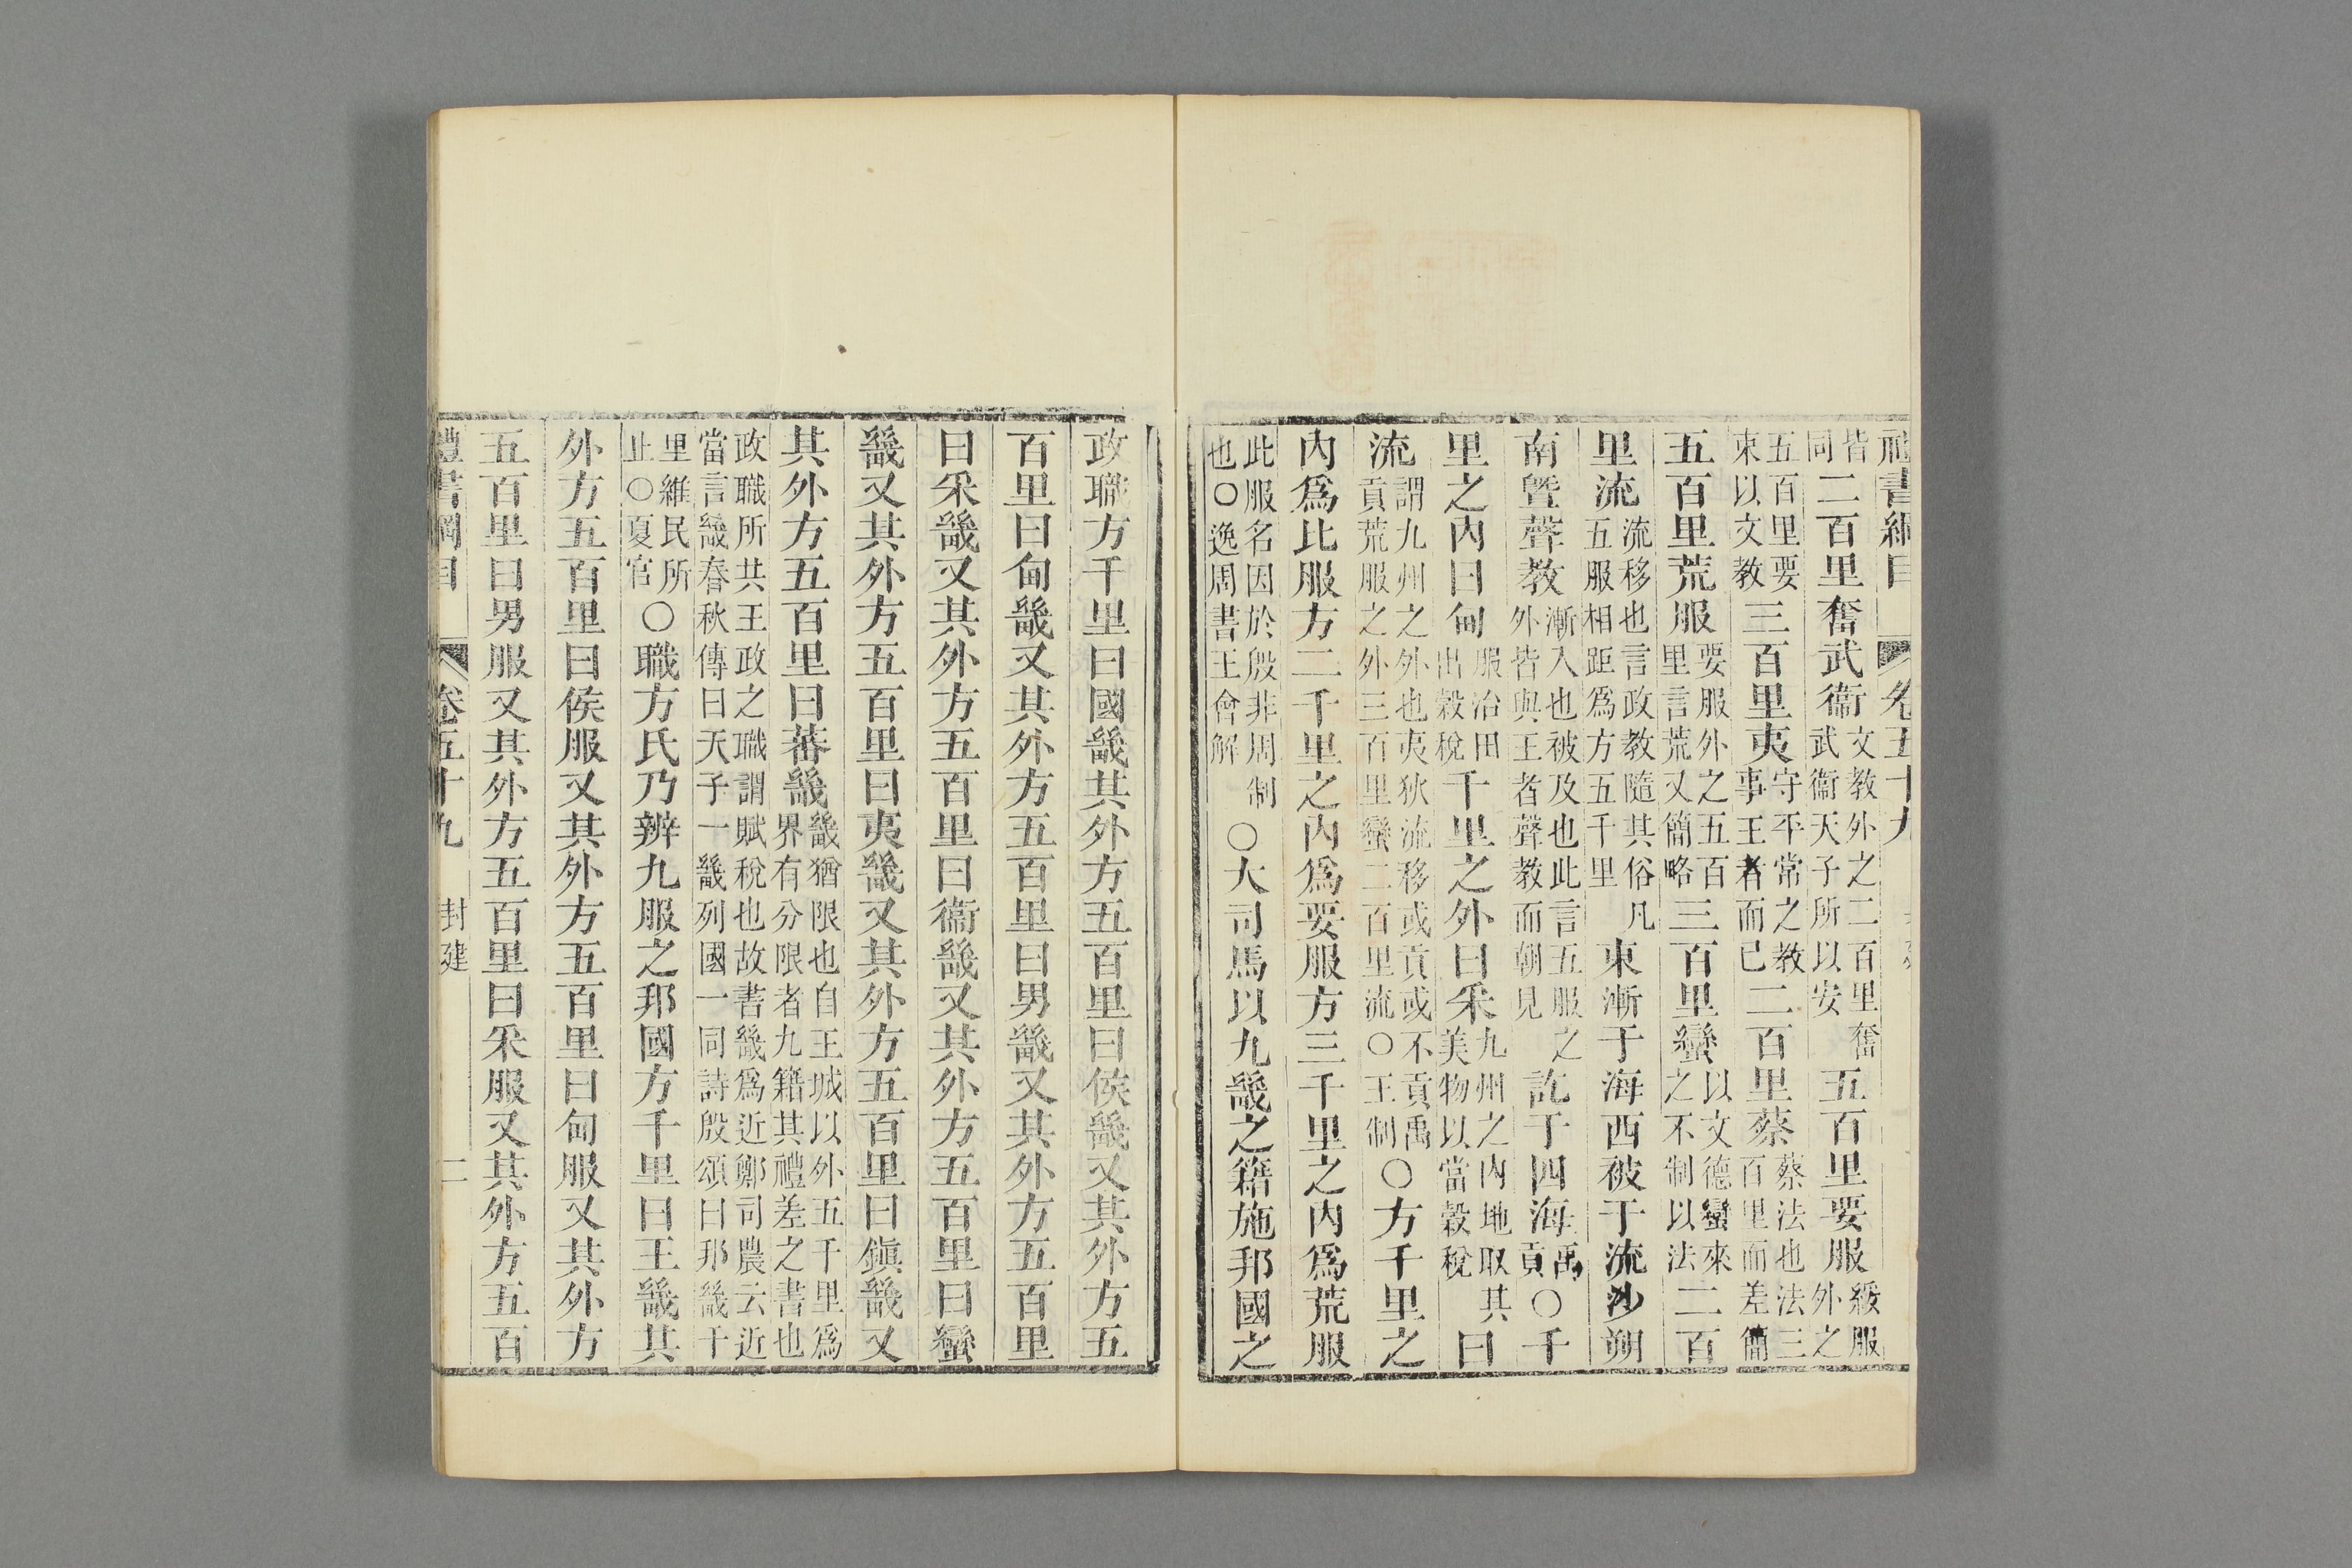 禮書綱目 卷五十九
皆同二百里奮武衞文教外之二百里奮武衞天子所以安五百里要服綏服外之
五百里要束以文教三百里夷守平常之教事王者而已二百里蔡蔡法也法三百里而差簡
五百里荒服要服外之五百里言荒又簡略三百里蠻以文德蠻來之不制以法二百
里流流移也言政教隨其俗凡五服相距爲方五千里東漸于海西被于流沙朔
南曁聲教漸入也被及也此言五服之外皆與王者聲教而朝見訖于四海禹貢○千
里之內曰甸服治田出穀稅千里之外曰采九州之內地取其美物以當穀稅曰
流謂九州之外也夷狄流移或貢或不貢禹貢荒服之外三百里蠻二百里流○王制○方千里之
內爲比服方二千里之內爲要服方三千里之內爲荒服
此服名因於殷非周制也○逸周書王會解○大司馬以九畿之籍施邦國之
政職方千里曰國畿其外方五百里曰侯畿又其外方五
百里曰甸畿又其外方五百里曰男畿又其外方五百里
曰采畿又其外方五百里曰衞畿又其外方五百里曰蠻
畿又其外方五百里曰夷畿又其外方五百里曰鎭畿又
其外方五百里曰蕃畿畿猶限也自王城以外五千里爲界有分限者九籍其禮差之書也
政職所共王政之職謂賦稅也故書畿爲近鄭司農云近當言畿春秋傳曰天子一畿列國一同詩殷頌曰邦畿千
里維民所止○夏官○職方氏乃辨九服之邦國方千里曰王畿其
外方五百里曰侯服又其外方五百里曰甸服又其外方
五百里曰男服又其外方五百里曰采服又其外方五百
禮書綱目 卷五十九 封建 二